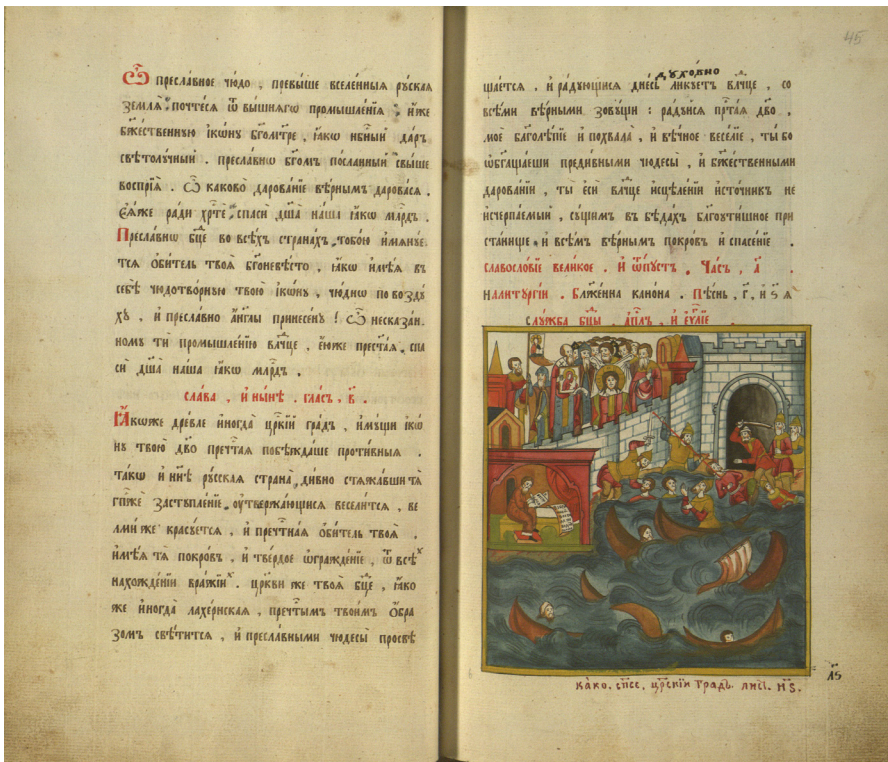 Ѽ пресла́вное чю́до , превы́ше вселе́нныя ру́ская
земля̀ почте́ся ѿ вы́шнягѡ промышле́нїя , и҆́же
бж҃е́ственную і҆кѡ́ну бг҃ома́тре , ꙗ҆́кѡ нбⷭ҇ный да́ръ
свѣтолу́чный . пресла́внѡ бг҃омъ по́сланный свы́ше
воспрїѧ̀ . Ѽ каково̀ дарова́нїе вѣ́рнымъ дарова́ся .
Еѧ́же ра́ди хрⷭ҇тѐ спасѝ дш҃а на́ша ꙗ҆́кѡ млⷭ҇рдъ .
Пресла́внѡ бцⷣе во всѣ́хъ страна́хъ , тобо́ю и҆мяну́е
тся ѻ҆би́тель твоѧ̀ бг҃оневѣ́сто , ꙗ҆́кѡ и҆мѣ́я въ
себѣ̀ чюдотво́рную твою̀ і҆кѡ́ну , чю́днѡ по возду́
ху , и҆ пресла́вно а҆́нг҃лы принесе́ну ! Ѽ несказа́н
ному ти промышле́нїю влⷣчце , е҆ю́же престⷭ҇а́я , спа
сѝ дш҃а на́ша ꙗ҆́кѡ млⷭ҇рдъ .
сла́ва , и҆ ны́нѣ . гла́съ , в҃ .
Ꙗ҆́коже дре́вле и҆ногда̀ црⷭ҇кїй гра́дъ , и҆му́щи і҆кѡ́
ну твою̀ дв҃о пречⷭ҇тая побѣжда́ше проти́вныя .
та́кѡ и҆ нн҃ѣ ру́сская страна̀ , ди́вно стяжа́вши тѧ̀
гпⷭ҇жѐ заступле́нїе , ᲂу҆твержа́ющися весели́тся , ве
лми́ же красу́ется , и҆ пречⷭ҇тная ѻ҆би́тель твоѧ̀ .
и҆мѣ́я тѧ̀ покро́въ , и҆ тве́рдое ѡ҆гражде́нїе , ѿ всѣ́ⷯ
нахожде́нїи вра́жїиⷯ . цр҃кви же твоѧ̀ бцⷣе , ꙗ҆́ко
же и҆ногда̀ лахе́рнская , пречⷭ҇тымъ твои́мъ ѻ҆́бра
зомъ свѣ́тится , и҆ пресла́вными чюдесы̀ просвѣ
45
щае́тся , и҆ ра́дующися дне́сь лику́етъ влⷣчце , со
духо́вно
все́ми вѣ́рными зову́щи : ра́дуйся прⷭ҇тая дв҃о ,
моѐ бл҃голѣ́пїе и҆ похвала̀ , и҆ вѣ́чное весе́лїе , ты́ бо
ѡ҆бг҃аща́еши преди́вными чюдесы̀ , и҆ бж҃е́ственными
дарова́нїи , ты̀ е҆сѝ влⷣчце и҆сцѣле́нїи и҆сто́чникъ не
и҆счерпа́емый , су́щимъ въ бѣда́хъ бл҃гоути́шное при
ста́нище , и҆ всѣ́мъ вѣ́рнымъ покро́въ и҆ спасе́нїе .
славосло́вїе вели́кое . и҆ ѿпу́стъ , Ча́съ , а҃ .
Налитургі́и . Бл҃же́нна кано́на . Пѣ́снь , г҃ , и҆ ѕ҃ я
слу́жба бцⷣы , а҆пⷭ҇лъ , и҆ е҆ѵⷢ҇лїе .
ка́ко . сп҃се , црⷭ҇кїи гра́дъ . ли́съ . н҃ѕ .
л҃ѕ